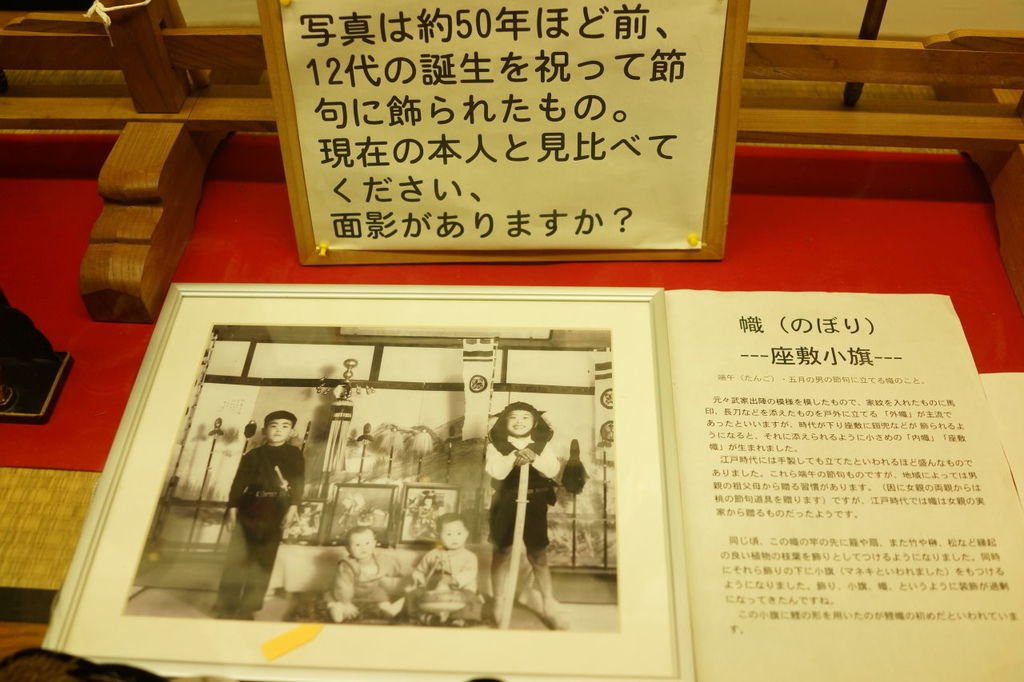 写真は約50年ほど前、
12代の誕生を祝って節
句に飾られたもの。
現在の本人と見比べて
ください、
面影がありますか？
幟（のぼり）
---座敷小旗---
端午（たんご）・五月の男の節句に立てる幟のこと。
元々武家出陣の模様を模したもので、家紋を入れたものに馬
印、長刀などを添えたものを戸外に立てる「外幟」が主流で
あったといいますが、時代が下り座敷に鎧兜などが飾られるよ
うになると、それに添えられるように小さめの「内幟」「座敷
幟」が生まれました。
江戸時代には手製しても立てたといわれるほど盛んなもので
ありました。これら端午の節句ものですが、地域によっては男
親の祖父母から贈る習慣があります。（因に女親の両親からは
桃の節句道具を贈ります）ですが、江戸時代では幟は女親の実
家から贈るものだったようです。
同じ頃、この幟の竿の先に籠や扇、また竹や榊、松など縁起
の良い植物の枝葉を飾りとしてつけるようになりました。同時
にそれら飾りの下に小旗（マネキといわれました）をもつける
ようになりました。飾り、小旗、幟、というように装飾が過剰
になってきたんですね。
この小旗に鯉の形を用いたのが鯉幟の初めだといわれていま
す。